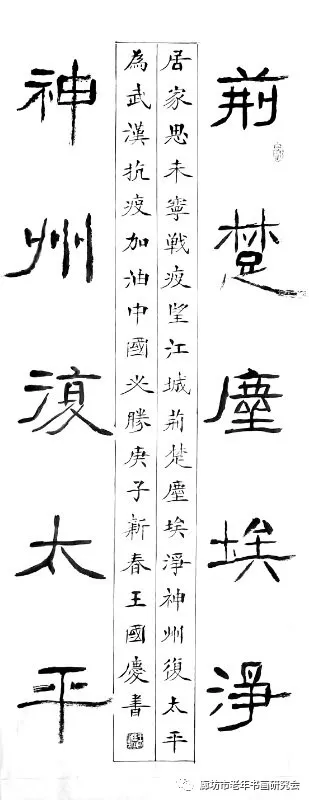 荆楚塵埃淨
居家思未寧戰疫望江城荊楚塵埃淨神州復太平
為武漢抗疫加油中國必勝庚子新春王國慶書
神州復太平
廊坊市老年书画研究会